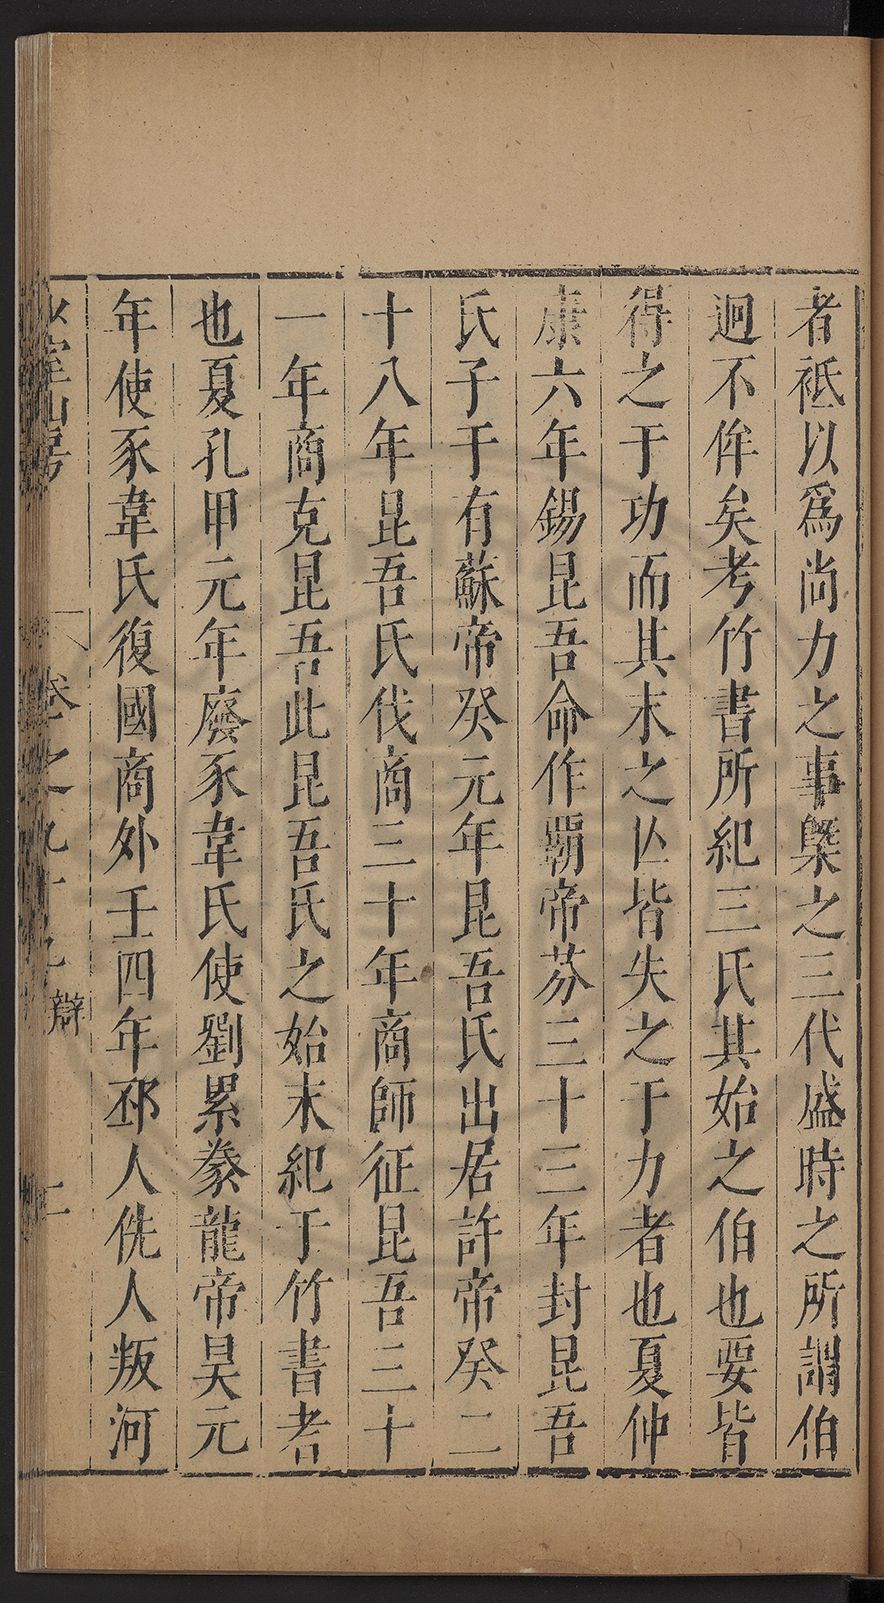 者祗以爲尚力之事槩之三代盛時之所謂伯
迥不侔矣考竹書所紀三氏其始之伯也要皆
得之于功而其末之亾皆失之于力者也夏仲
康六年錫昆吾命作覇帝芬三十三年封昆吾
氏子于有蘇帝癸元年昆吾氏出居許帝癸二
十八年昆吾氏伐商三十年商師征昆吾三十
一年商克昆吾此昆吾氏之始末紀于竹書者
也夏孔甲元年廢豕韋氏使劉累豢龍帝昊元
年使豕韋氏復國商外壬四年邳人侁人叛河
少室山房 卷之九十九 辯 二